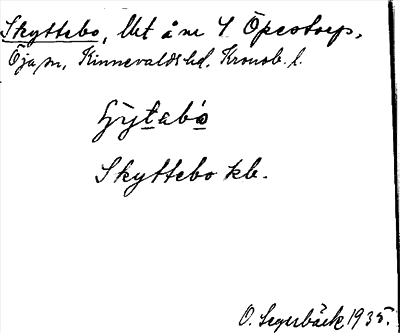 Skyttebo, lht å nr 4 Öpestorp,
Öja sn, Kinnevalds hd, Kronob. l.
Skyttebo kb.
O. Segerbäck 1935.